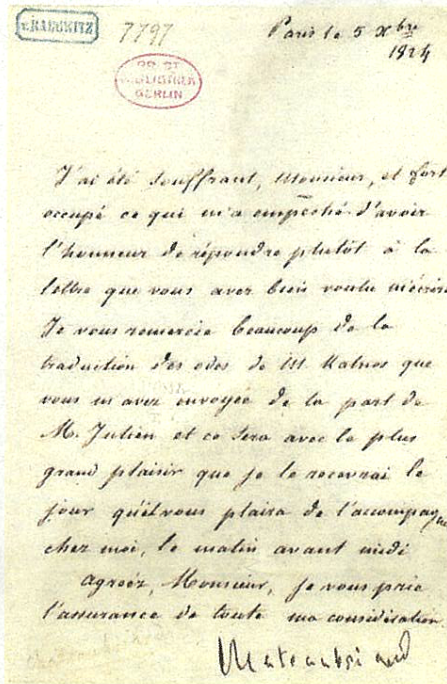 v. RADOWITZ
7797
Paris le 5 Xbre
1824
PR. ST
BIBLIOTHEK
BERLIN
J'ai été souffrant, Monsieur, et fort
occupé ce qui m'a empeché d'avoir
l'honneur de répondre plutôt à la
lettre que vous avez bien voulu m'écrire
Je vous remercie beaucoup de la
traduction des odes de M. Kalvos que
vous m'avez envoyée de la part de
M. Julien et ce sera avec le plus
grand plaisir que je le recevrai le
jour qu'il vous plaira de l'accompagner
chez moi, le matin avant midi
agréez, Monsieur, je vous prie
l'assurance de toute ma considération
Chateaubriand